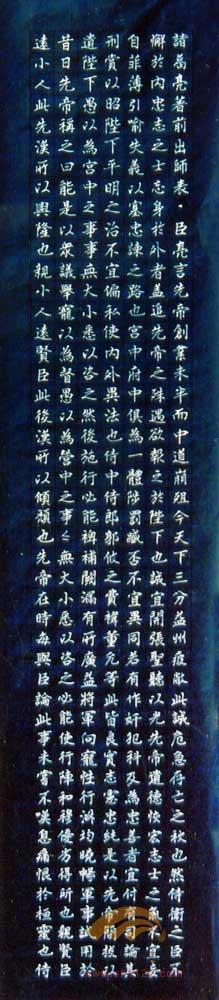 諸葛亮著前出師表·臣亮言先帝創業未半而中道崩殂今天下三分益州疲敝此誠危急存亡之秋也然侍衛之臣不
懈於內忠志之士忘身於外者蓋追先帝之殊遇欲報之於陛下也誠宜開張聖聽以光先帝遺德恢宏志士之氣宜妄
自菲薄引喻失義以塞忠諫之路也宮中府中俱為一體陟罰臧否不宜異同若有作奸犯科及為忠善者宜付有司論其
刑賞以昭陛下平明之治不宜偏私使內外異法也侍中侍郎郭攸之費禕董允等此皆良實志慮忠純是以先帝簡拔以
遺陛下愚以為宮中之事事無大小悉以咨之然後施行必能裨補闕漏有所廣益將軍向寵性行淑均曉暢軍事試用於
昔日先帝稱之曰能是以眾議舉寵以為督愚以為營中之事々無大小悉以咨之必能使行陣和穆優劣得所也親賢臣
遠小人此先漢所以興隆也親小人遠賢臣此後漢所以傾頹也先帝在時每與臣論此事未嘗不嘆息痛恨於桓靈也侍